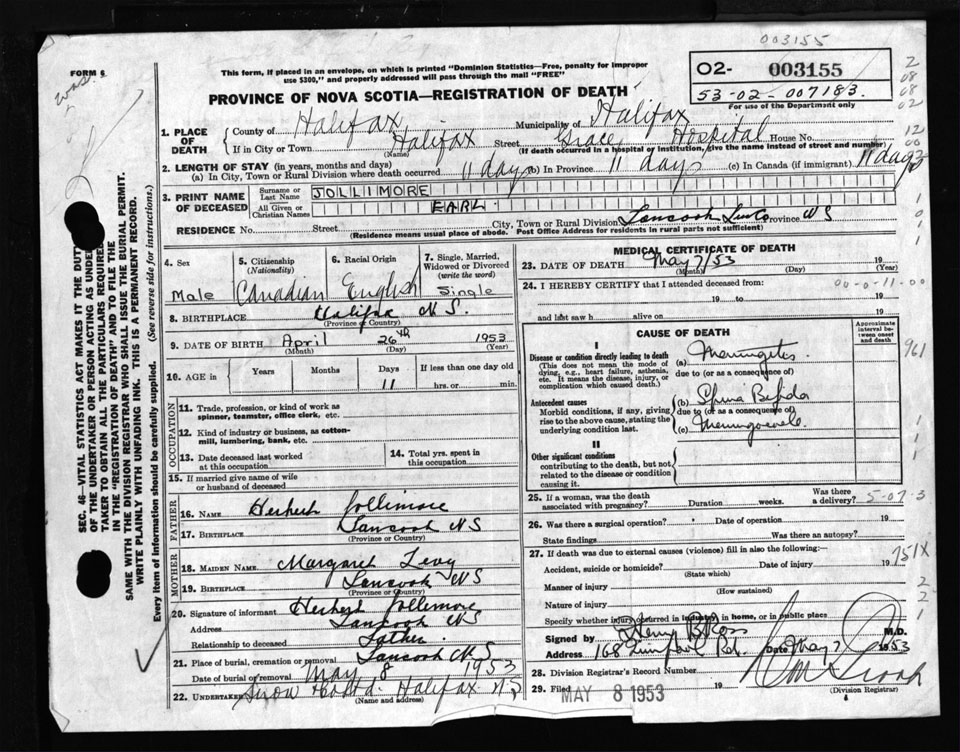 003155
FORM 6
This form, if placed in an envelope, on which is printed "Dominion Statistics—Free, penalty for improper
use $300," and properly addressed will pass through the mail "FREE"
O2- 003155
53-02-007183.
For use of the Department only
PROVINCE OF NOVA SCOTIA—REGISTRATION OF DEATH
1. PLACE OF DEATH
County of Halifax Municipality of Halifax
If in City or Town Halifax Street Grace Hospital House No.
(Name) (If death occurred in a hospital or institution, give the name instead of street and number)
2. LENGTH OF STAY (in years, months and days)
(a) In City, Town or Rural Division where death occurred 11 days (b) In Province 11 days (c) In Canada (if immigrant) 11 days
3. PRINT NAME OF DECEASED
Surname or Last Name JOLLIMORE
All Given or Christian Names EARL
RESIDENCE No. Street City, Town or Rural Division Tancook Province NS
(Residence means usual place of abode. Post Office Address for residents in rural parts not sufficient)
4. Sex Male
5. Citizenship (Nationality) Canadian
6. Racial Origin English
7. Single, Married, Widowed or Divorced (write the word) Single
8. BIRTHPLACE Halifax N S.
(Province or Country)
9. DATE OF BIRTH April 26th 1953
(Month) (Day) (Year)
10. AGE in Years Months Days 11 If less than one day old hrs. or min.
OCCUPATION
11. Trade, profession, or kind of work as spinner, teamster, office clerk, etc.
12. Kind of industry or business, as cotton-mill, lumbering, bank, etc.
13. Date deceased last worked at this occupation
14. Total yrs. spent in this occupation
15. If married give name of wife or husband of deceased
FATHER
16. NAME Herbert Jollimore
17. BIRTHPLACE Tancook N S
(Province or Country)
MOTHER
18. MAIDEN NAME Margaret Levy
19. BIRTHPLACE Tancook NS
(Province or Country)
20. Signature of informant Herbert Jollimore
Address Tancook NS
Relationship to deceased Father
21. Place of burial, cremation or removal Tancook N.S
Date of burial or removal May 8 1953
22. UNDERTAKER Snow Halifax N.S
(Name and address)
MEDICAL CERTIFICATE OF DEATH
23. DATE OF DEATH May 7/53 19
(Month) (Day) (Year)
24. I HEREBY CERTIFY that I attended deceased from: 00-0-11-00
19 to 19
and last saw h alive on 19
CAUSE OF DEATH
Approximate interval between onset and death
I
Disease or condition directly leading to death
(This does not mean the mode of dying, e.g., heart failure, asthenia, etc. It means the disease, injury, or complication which caused death.)
(a) Meningitis
due to (or as a consequence of)
Antecedent causes
Morbid conditions, if any, giving rise to the above cause, stating the underlying condition last.
(b) Spina Bifida
due to (or as a consequence of)
(c) Meningocele
II
Other significant conditions
contributing to the death, but not related to the disease or condition causing it.
961
25. If a woman, was the death associated with pregnancy? Duration weeks. Was there a delivery? 5-07-3
26. Was there a surgical operation? Date of operation 19
State findings Was there an autopsy?
27. If death was due to external causes (violence) fill in also the following:—
Accident, suicide or homicide? Date of injury 19
(State which)
751X
Manner of injury
(How sustained)
Nature of injury
Specify whether injury occurred in industry, in home, or in public place
Signed by Henry B Ross M.D.
Address 168 Date May 7 1953
28. Division Registrar's Record Number
29. Filed MAY 8 1953 19
(Division Registrar)
SEC. 46—VITAL STATISTICS ACT MAKES IT THE DUTY
OF THE UNDERTAKER OR PERSON ACTING AS UNDER
TAKER TO OBTAIN ALL THE PARTICULARS REQUIRED
IN THE "REGISTRATION OF DEATH" AND TO FILE THE
SAME WITH THE DIVISION REGISTRAR WHO SHALL ISSUE THE BURIAL PERMIT.
WRITE PLAINLY WITH UNFADING INK. THIS IS A PERMANENT RECORD.
Every item of information should be carefully supplied. (See reverse side for instructions.)